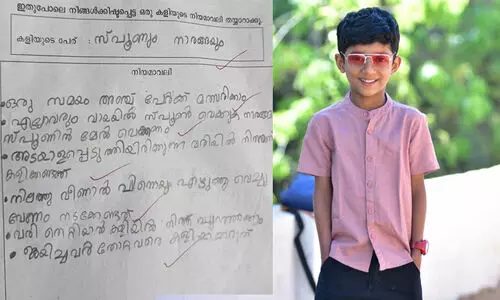 ഇതുപോലെ നിങ്ങൾക്കിഷ്ടപ്പെട്ട ഒരു കളിയുടെ നിയമാവലി തയ്യാറാക്കൂ.
കളിയുടെ പേര് : സ്പൂണും നാരങ്ങയും
നിയമാവലി
• ഒരു സമയം അഞ്ച് പേർക്ക് മത്സരിക്കാം
• എല്ലാവരും വായിൽ സ്പൂൺ വെക്കുക നാരങ്ങ
സ്പൂണിൻ മേൽ വെക്കണം
• അടയാളപ്പെടുത്തിയിരിക്കുന്ന വരിയിൽ നിന്നാണ്
കളിക്കേണ്ടത്
• നിലത്തു വീണാൽ പിന്നെയും എടുത്തു വെച്ചു
വേണം നടക്കേണ്ടത്
• വരി തെറ്റിയാൽ കളിയിൽ നിന്ന് പുറത്താകും
• ജയിച്ചവർ തോറ്റവരെ കളിയാക്കരുത്